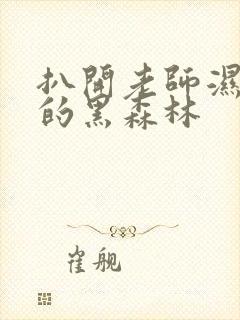 扒開老師濕
的黑森林
崔舰